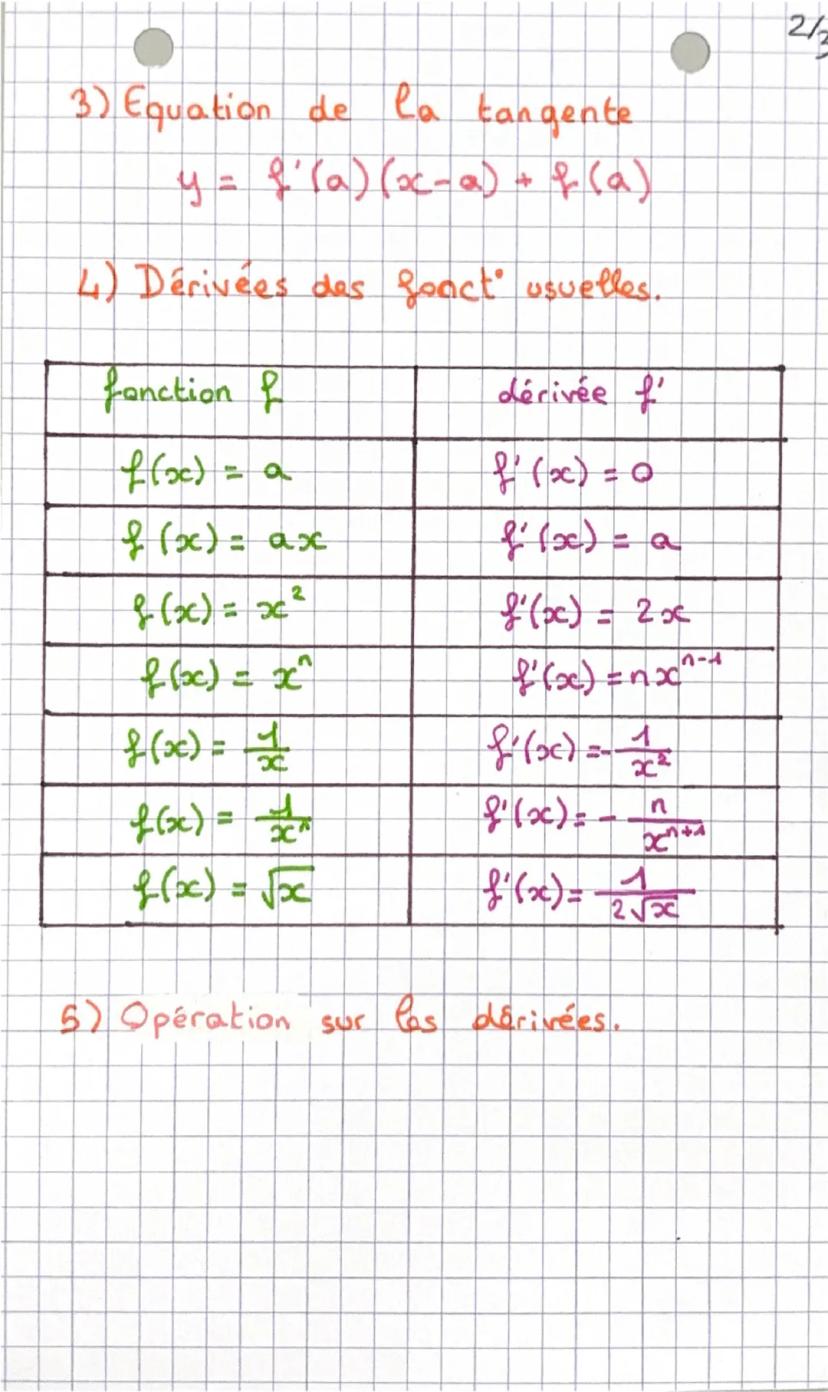 2/3
3) Equation de la tangente
y = f'(a)(x-a) + f(a)
4) Dérivées des fonct° usuelles.
fonction f dérivée f'
f(x) = a f'(x) = 0
f(x) = ax f'(x) = a
f(x) = x² f'(x) = 2x
f(x) = xⁿ f'(x) = nxⁿ⁻¹
f(x) = 1/x f'(x) = -1/x²
f(x) = 1/xⁿ f'(x) = - n/xⁿ⁺¹
f(x) = √x f'(x) = 1/2√x
5) Opération sur les dérivées.